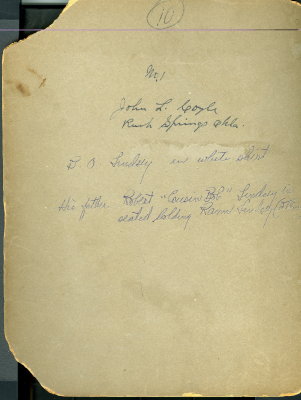 10
No 1
John L. Coyle
Rush Springs Okla.
D. O. Lindsey in white shirt
His father Robert "Cousin Bob" Lindsey is
seated holding